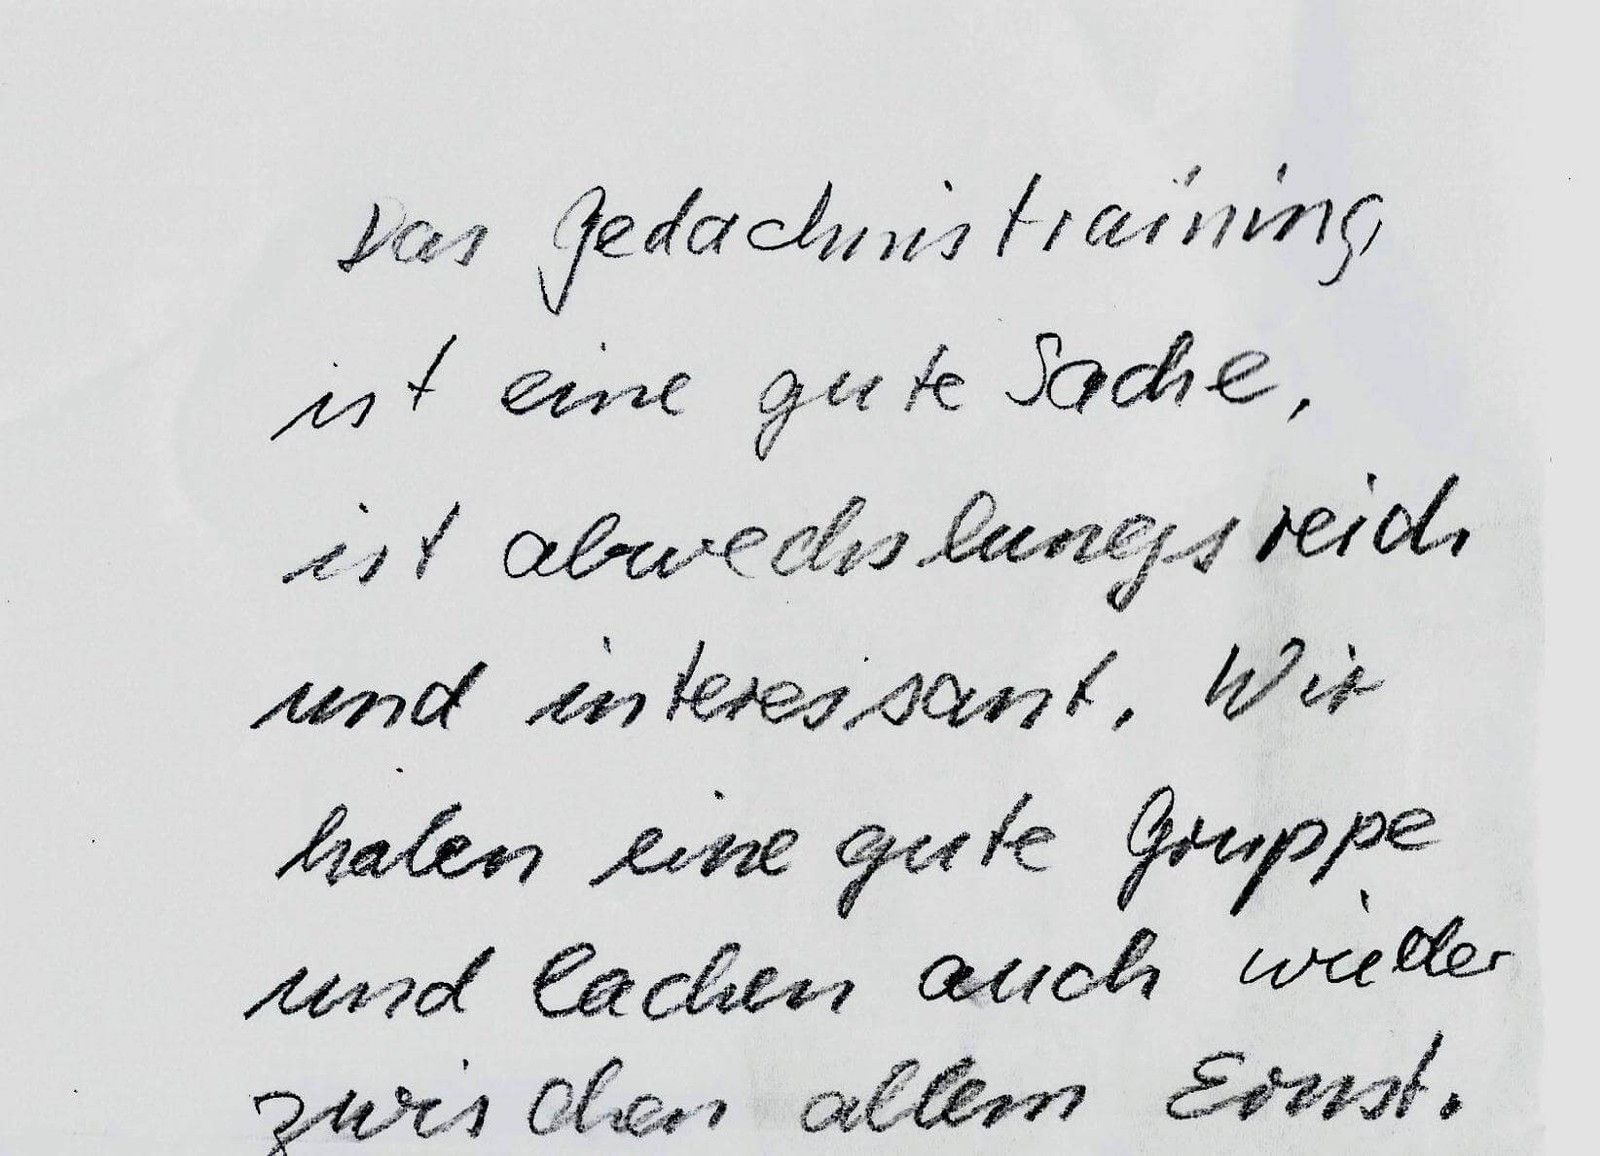 Das Gedachnistraining
ist eine gute Sache,
ist abwechslungsreich
und interessant. Wir
haben eine gute Gruppe
und lachen auch wieder
zwischen allem Ernst.